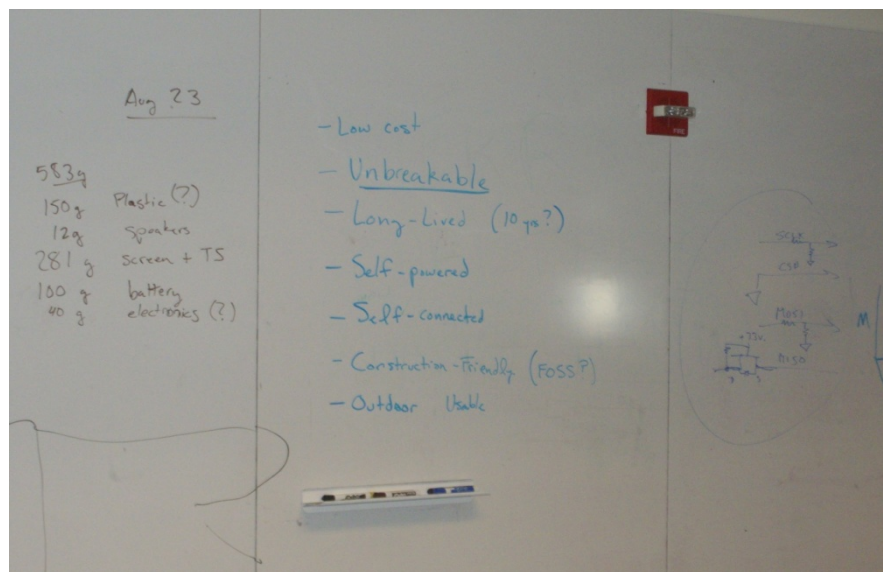 Aug 23
583g
150g Plastic (?)
12g speakers
281 g screen + TS
100 g battery
40 g electronics (?)
- Low cost
- Unbreakable
- Long-Lived (10 yrs?)
- Self-powered
- Self-connected
- Construction-Friendly (FOSS?)
- Outdoor Usable
SCLK
MOSI
MISO
M